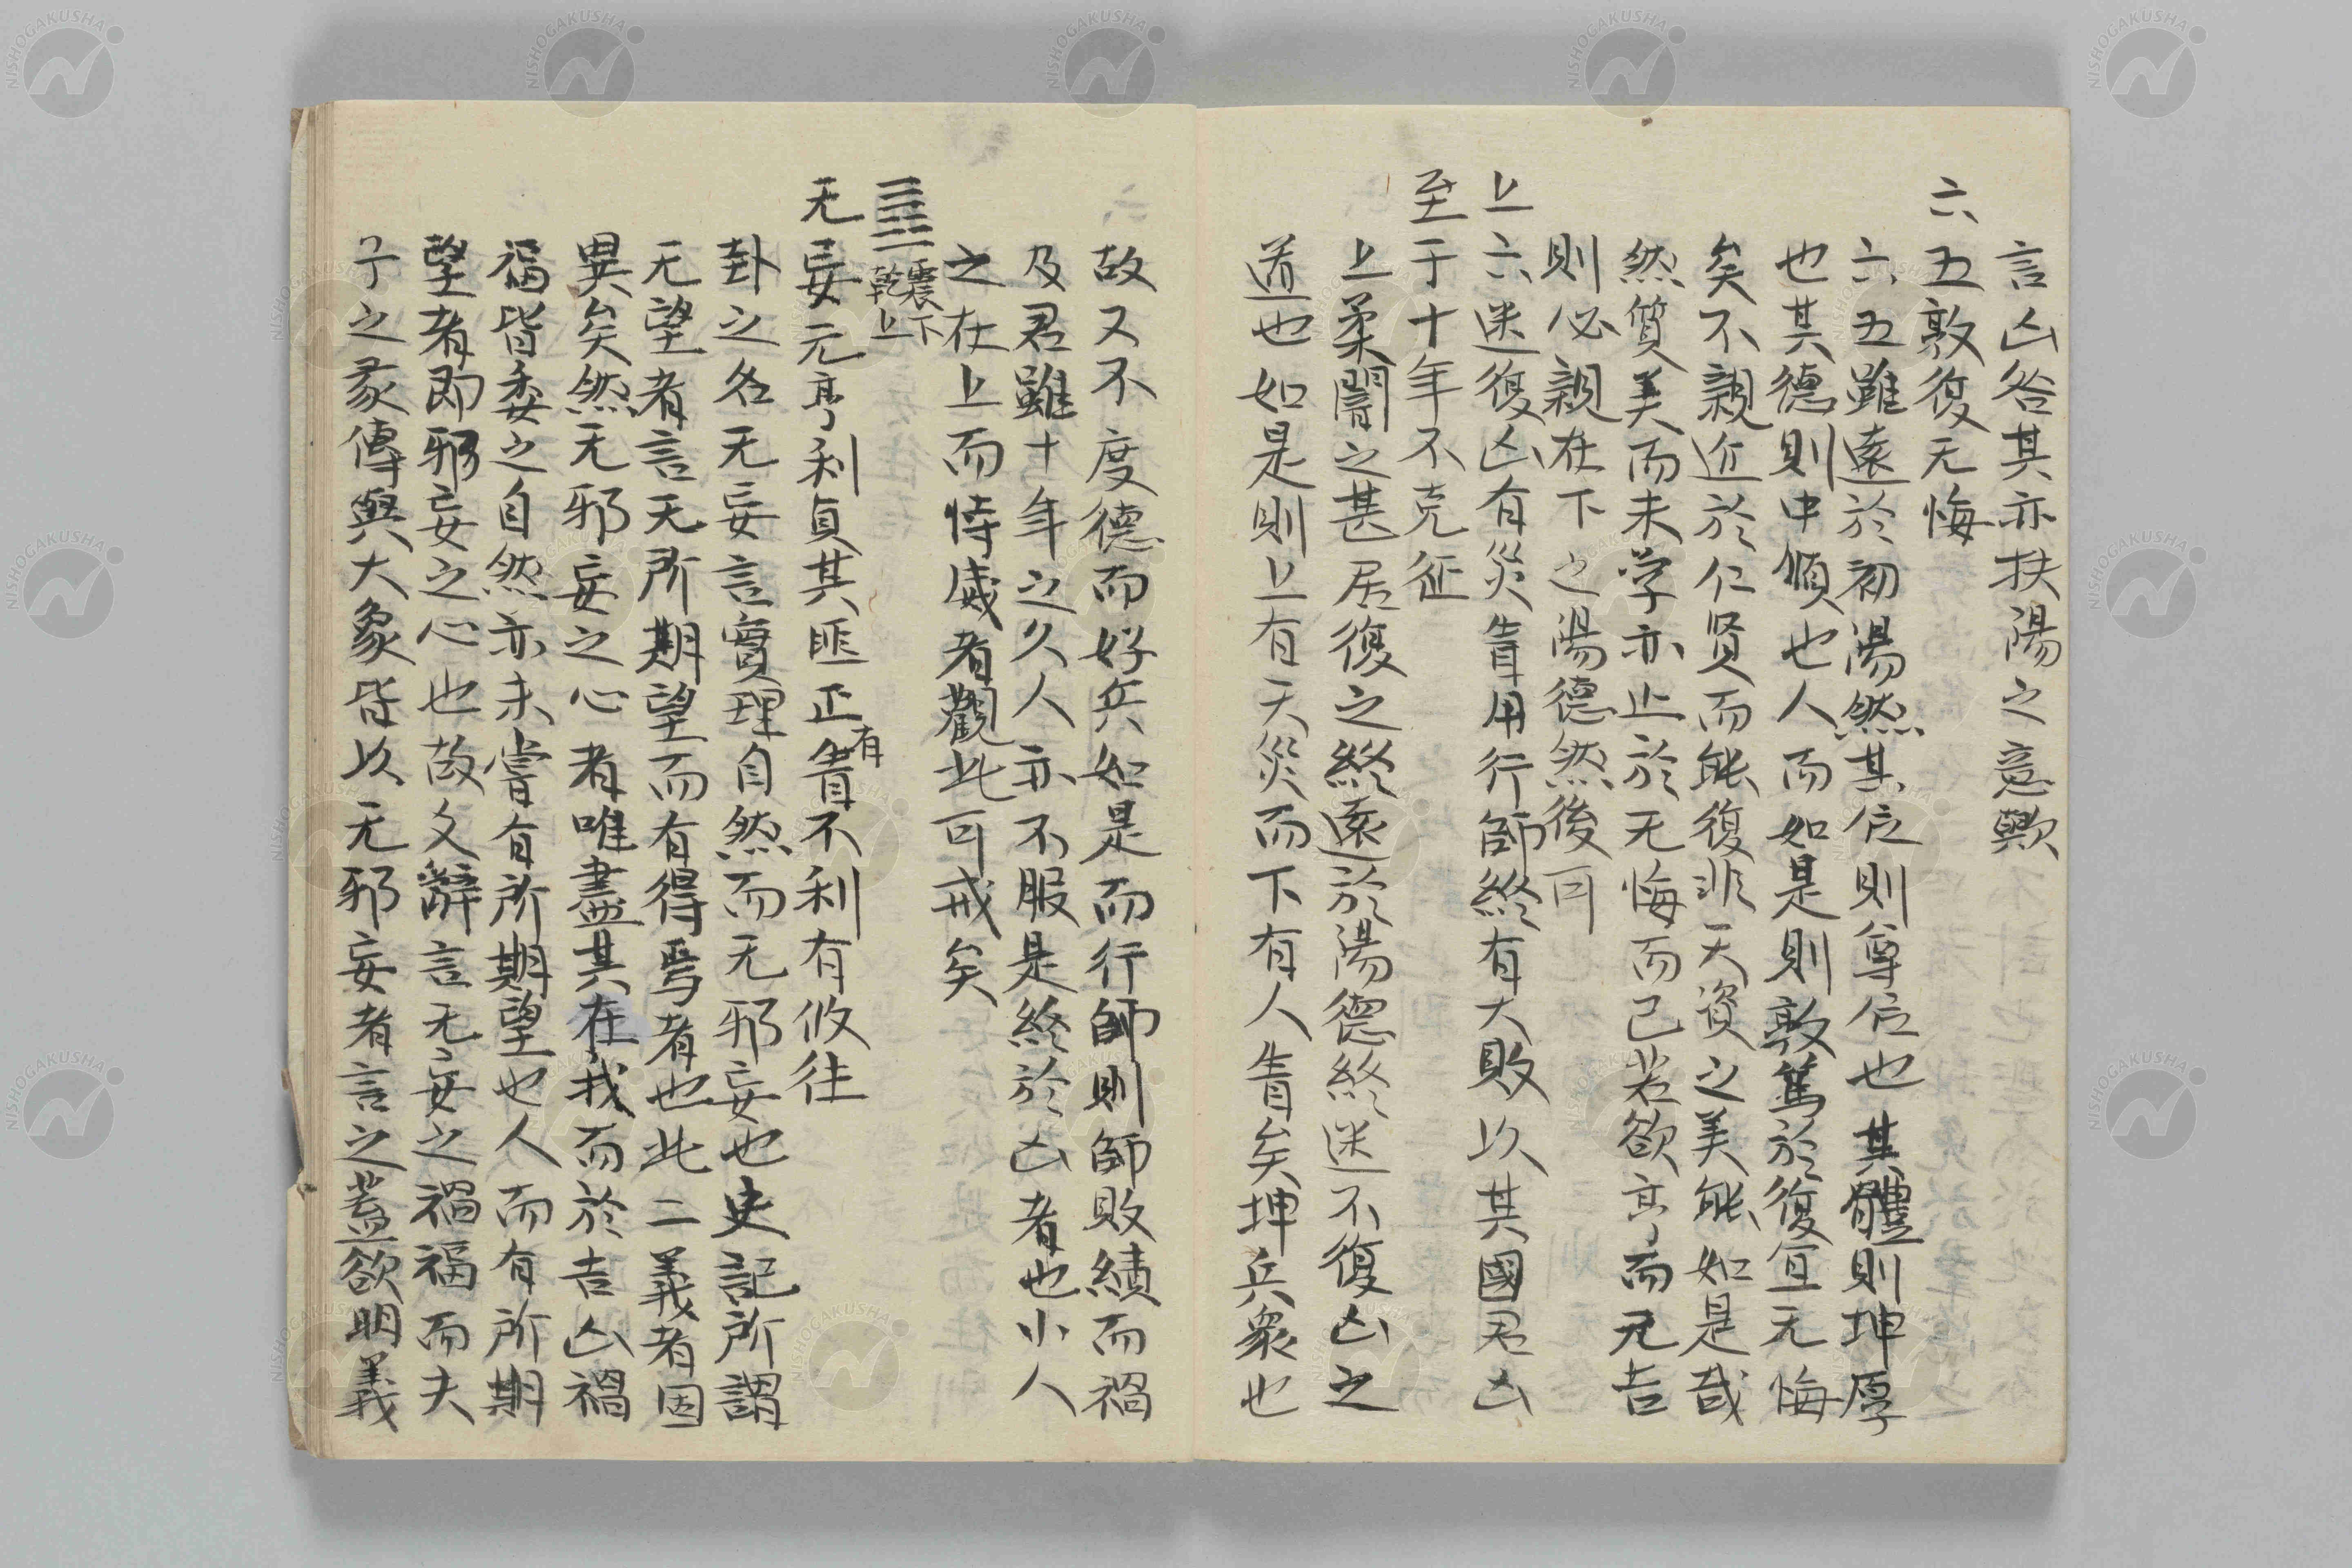 言凶咎其亦扶陽之意歟
六五敦復无悔
六五雖遠於初陽然其位則尊位也其體則坤厚
也其德則中順也人而如是則敦篤於復宜无悔
矣不親近於仁贤而能復非天資之美能如是哉
然質美而未学亦止於无悔而已若欲亨而元吉
則必親在下之陽德然後可
上六迷復凶有災眚用行師終有大敗以其國君凶
至于十年不克征
上柔闇之甚居復之終遠於陽德終迷不復凶之
道也如是則上有天災而下有人眚矣坤兵衆也
故又不度德而好兵如是而行師則師敗績而禍
及君雖十年之久人亦不服是終於凶者也小人
之在上而恃威者觀此可戒矣
䷘震下乾上
无妄元亨利貞其匪正有眚不利有攸往
卦之名无妄言實理自然而无邪妄也史記所謂
无望者言无所期望而有得焉者也此二義者固
異矣然无邪妄之心者唯盡其在我而於吉凶禍
福皆委之自然亦未嘗有所期望也人而有所期
望者即邪妄之心也故文辭言无妄之禍福而夫
子之彖傳與大象皆以无邪妄者言之蓋欲明義